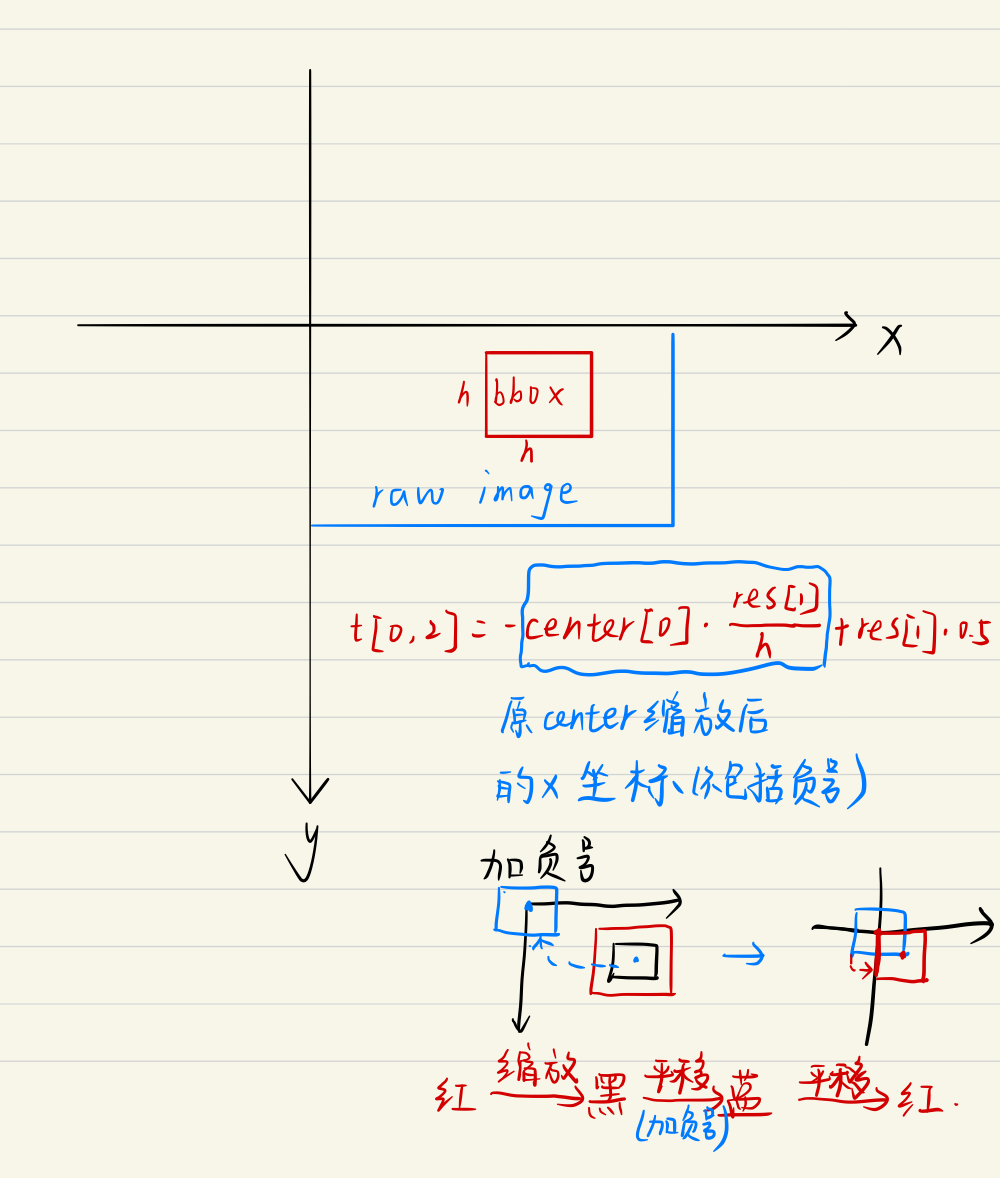 x
h bbox
h
raw image
t[0,2] = -center[0]· res[1]/h +res[1]·0.5
原center缩放后
的x坐标(不包括负号)
y
加负号
红 缩放 黑 平移 蓝 平移 红.
(加负号)